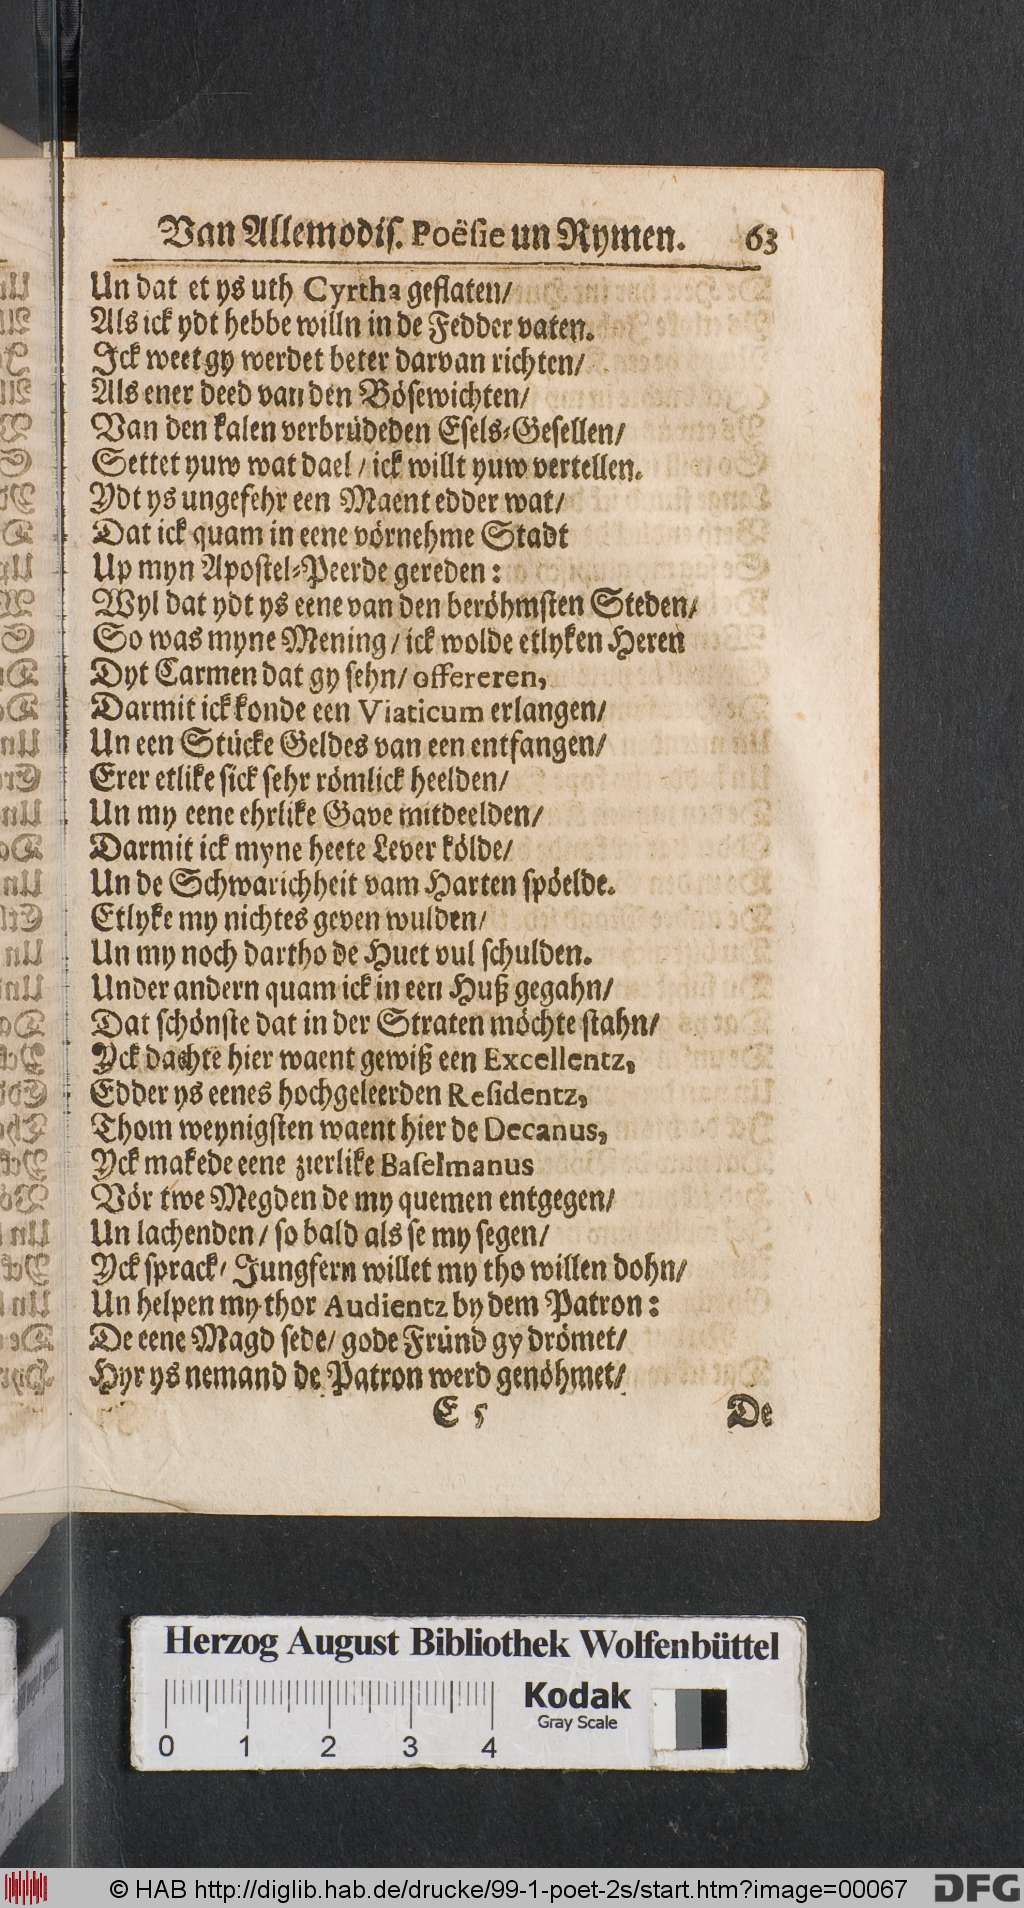 Van Allemodiſ. Poëſie un Rymen. 63
Un dat et ys uth Cyrtha geflaten/
Als ick ydt hebbe willn in de Fedder vaten.
Ick weet gy werdet beter darvan richten/
Als ener deed van den Böſewichten/
Van den kalen verbrüdeden Eſels-Geſellen/
Settet yuw wat dael / ick willt yuw vertellen.
Ydt ys ungefehr een Maent edder wat/
Dat ick quam in eene vörnehme Stadt
Up myn Apoſtel-Peerde gereden:
Wyl dat ydt ys eene van den beröhmſten Steden/
So was myne Mening / ick wolde etlyken Heren
Dyt Carmen dat gy ſehn / offereren,
Darmit ick konde een Viaticum erlangen/
Un een Stücke Geldes van een entfangen/
Erer etlike ſick ſehr römlick heelden/
Un my eene ehrlike Gave mitdeelden/
Darmit ick myne heete Lever kölde/
Un de Schwarichheit vam Harten ſpöelde.
Etlyke my nichtes geven wulden/
Un my noch dartho de Huet vul ſchulden.
Under andern quam ick in een Huß gegahn/
Dat ſchönſte dat in der Straten möchte ſtahn/
Yck dachte hier waent gewiß een Excellentz,
Edder ys eenes hochgeleerden Reſidentz,
Thom weynigſten waent hier de Decanus,
Yck makede eene zierlike Baſelmanus
Vör twe Megden de my quemen entgegen/
Un lachenden / ſo bald als ſe my ſegen/
Yck ſprack / Jungfern willet my tho willen dohn/
Un helpen my thor Audientz by dem Patron:
De eene Magd ſede / gode Fründ gy drömet/
Hyr ys nemand de Patron werd genöhmet/
E 5 De
Herzog August Bibliothek Wolfenbüttel
0 1 2 3 4
Kodak
Gray Scale
© HAB http://diglib.hab.de/drucke/99-1-poet-2s/start.htm?image=00067
DFG